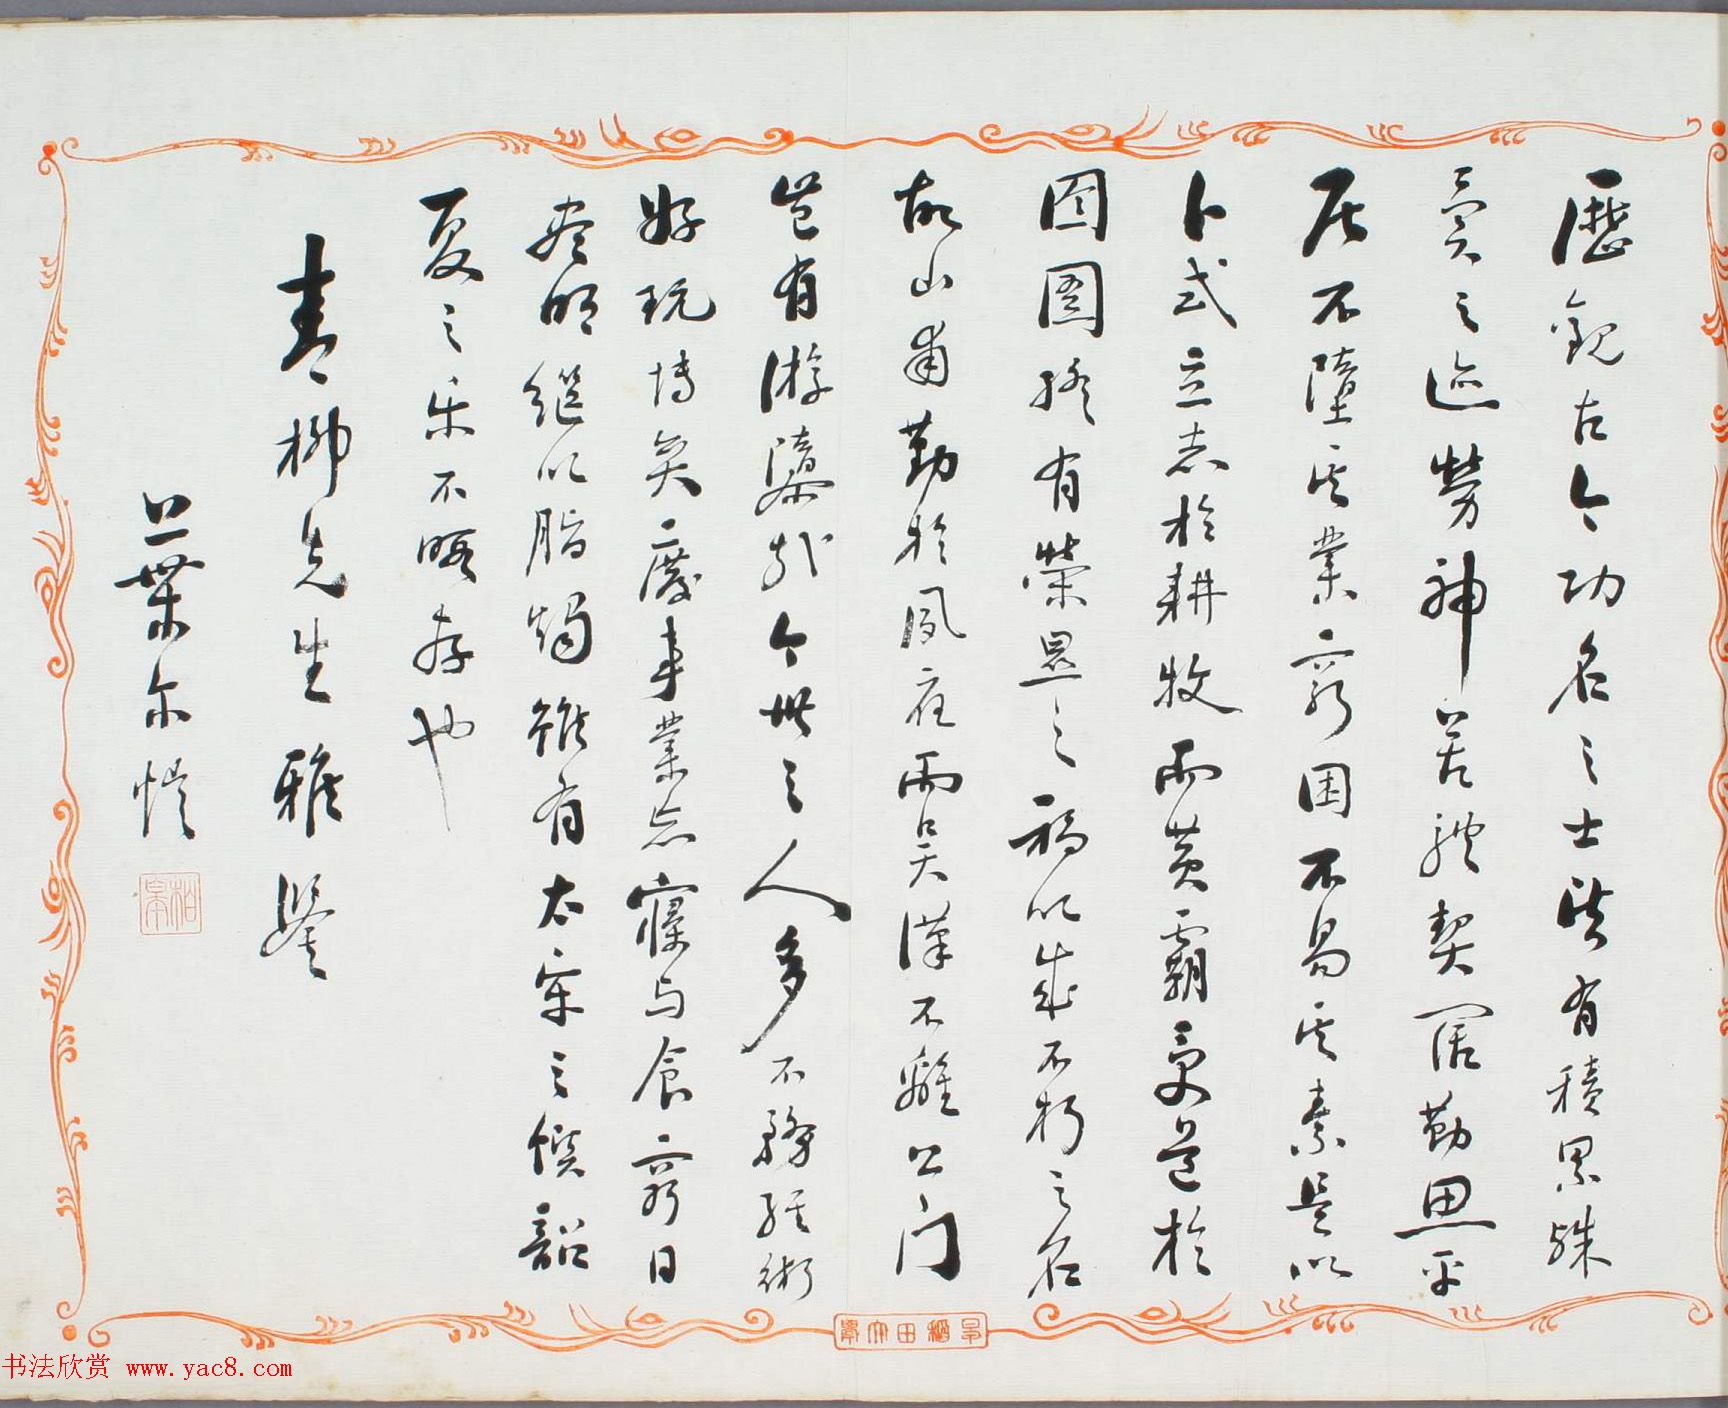 歷觀古今功名之士皆有積累殊
異之迹勞神苦體契闊勤思平
居不墮其業窮困不易其素是以
卜式立志於耕牧而黃霸受道於
囹圄終有榮顯之福以成不朽之名
故山甫勤於夙夜而吳漢不離公門
豈有游惰哉今世之人多不務經術
好玩博奕廢事業忘寢與食窮日
盡明繼以脂燭雖有太牢之饌韶
夏之樂不暇存也
青柳先生雅鑒
葉尔愷
柏皋
早稻田
书法欣赏 www.yac8.com